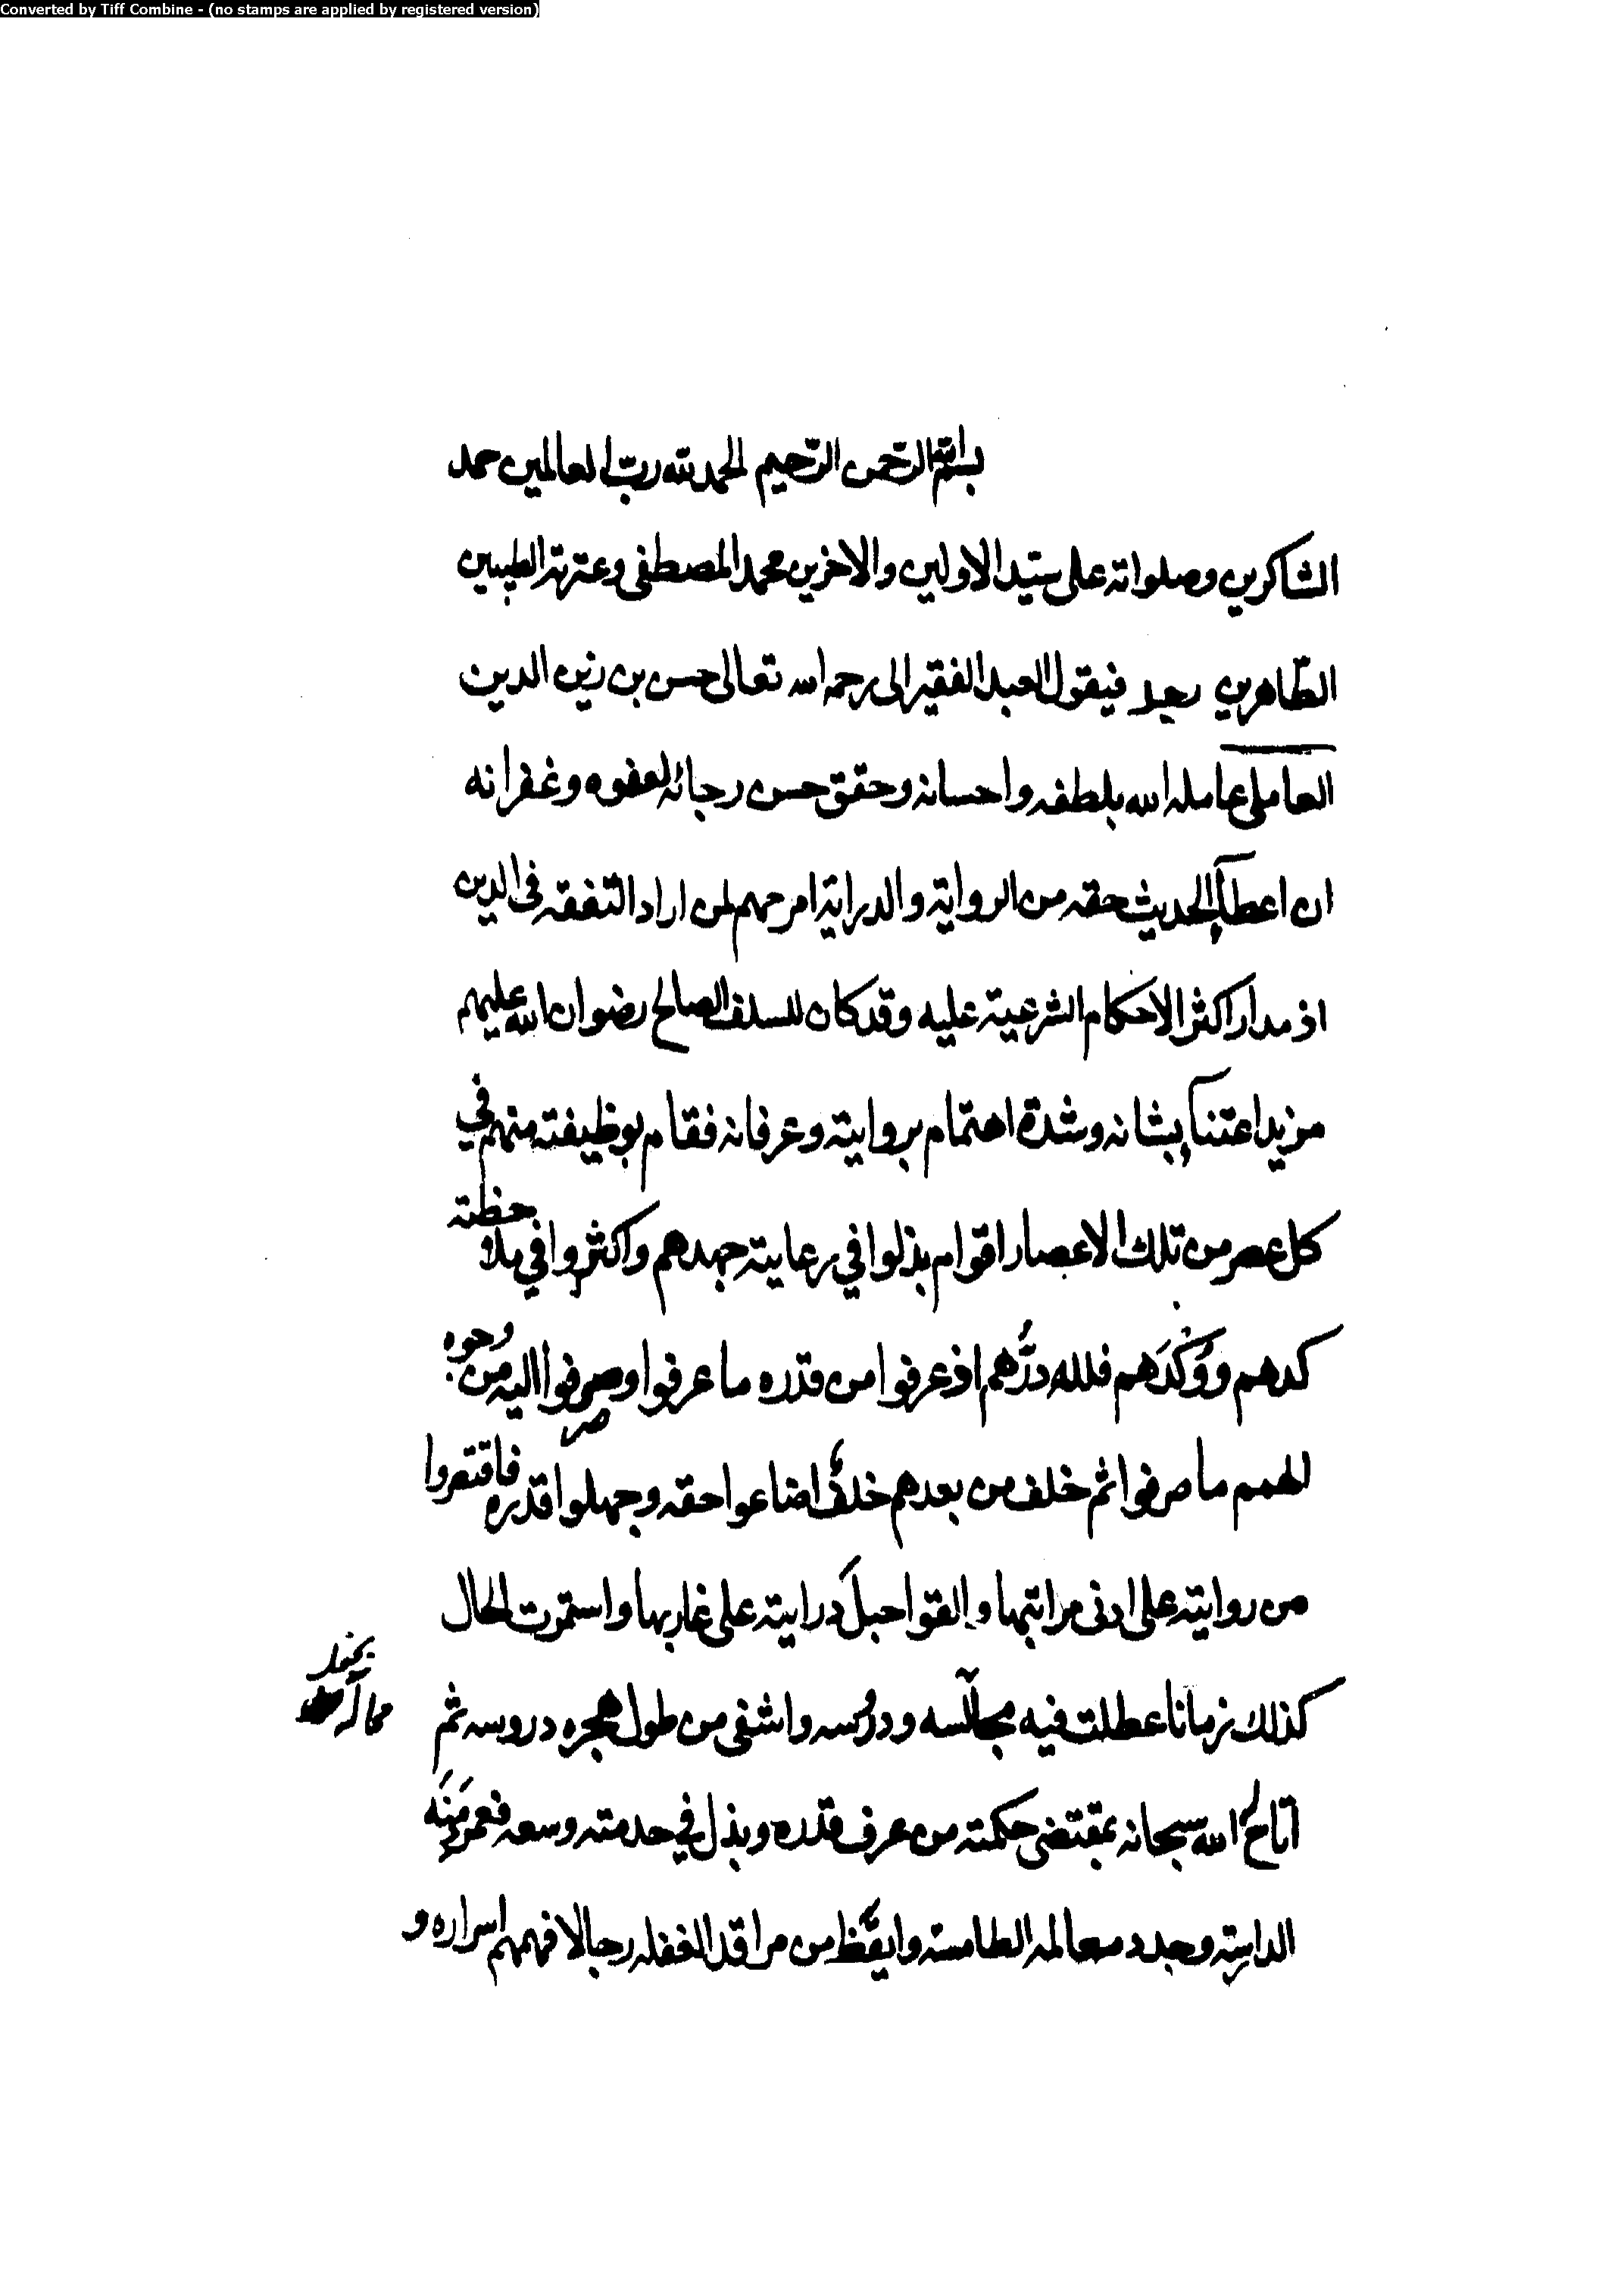 Converted by Tiff Combine - (no stamps are applied by registered version)
بسم الله الرحمن الرحيم الحمد لله رب العالمين حمد
الشاكرين وصلواته على سيّد الاولين والاخرين محمد المصطفى وعترته الطيبين
الطّاهرين وبعد فيقول العبد الفقير الى رحمه الله تعالى حسن بن زين الدين
العاملي عامله الله بلطفه واحسانه وحقق حسن رجائه لعفوه وغفرانه
ان اعطآء الحديث حقه من الرواية والدراية امر مهم لمن اراد التفقه في الدين
اذ مدار اكثر الاحكام الشرعية عليه وقد كان للسلف الصالح رضوان الله عليهم
مزيد اعتناء بشانه وشدة اهتمام بروايته وعرفانه فقام بوظيفته منهم في
كل عصر من تلك الاعصار اقوام بذلوا في رعايته جهدهم واكثروا في ملاحظته
كدهم ووُكْدَهم فلله درُّهم اذ عرفوا من قدره ما عرفوا وصرفوا اليه من وجوه
الهمم ما صرفوا ثم خلف من بعدهم خلفٌ اضاعوا حقه وجهلوا قدره فاقتصروا
من روايته على ادنى مراتبها والقوا حبلَ درايته على غاربها واستمرت الحال
كذلك زمانا عطلت فيه مجالسه ودرُسه واشفى من طول هجره دروسه ثم
اتاح الله سبحانه بمقتضى حكمته من عرف قدره وبذل في خدمته وسعه فعمر مَنَه
الدارسة وجدد معالمه الطامسة وايقَظ من مراقد الغفله رجالا فهمهم اسراره و